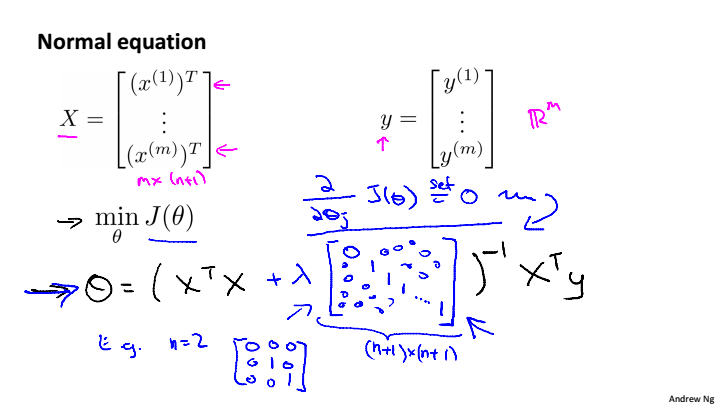 Normal equation
X = [ (x^(1))^T ⋮ (x^(m))^T ] ←
←
m×(n+1)
y = [ y^(1) ⋮ y^(m) ] ℝ^m
↑
→ min_θ J(θ)
∂/∂θj J(θ) set = 0
→ θ = ( X^T X + λ [ 0 0 0 0 0 1 0 0 0 1 0 0 0 1 0 0 0 … 1 ] )^-1 X^T y
(n+1)×(n+1)
E.g. n=2 [ 0 0 0
0 1 0
0 0 1 ]
Andrew Ng